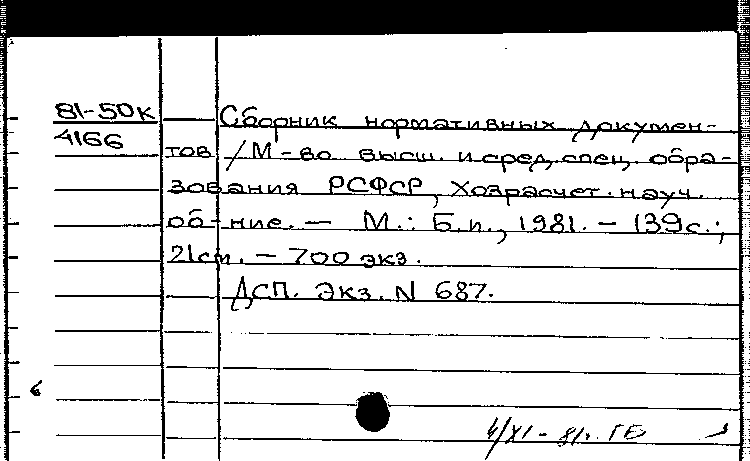 81-50к
4166
Сборник нормативных докумен-
тов / М-во высш. и сред. спец. обра-
зования РСФСР, Хозрасчет. науч.
об-ние. — М.: Б.и., 1981. — 139 с.;
21 см. — 700 экз.
ДСП. Экз. N 687.
6
4/XI - 81г. ГБ